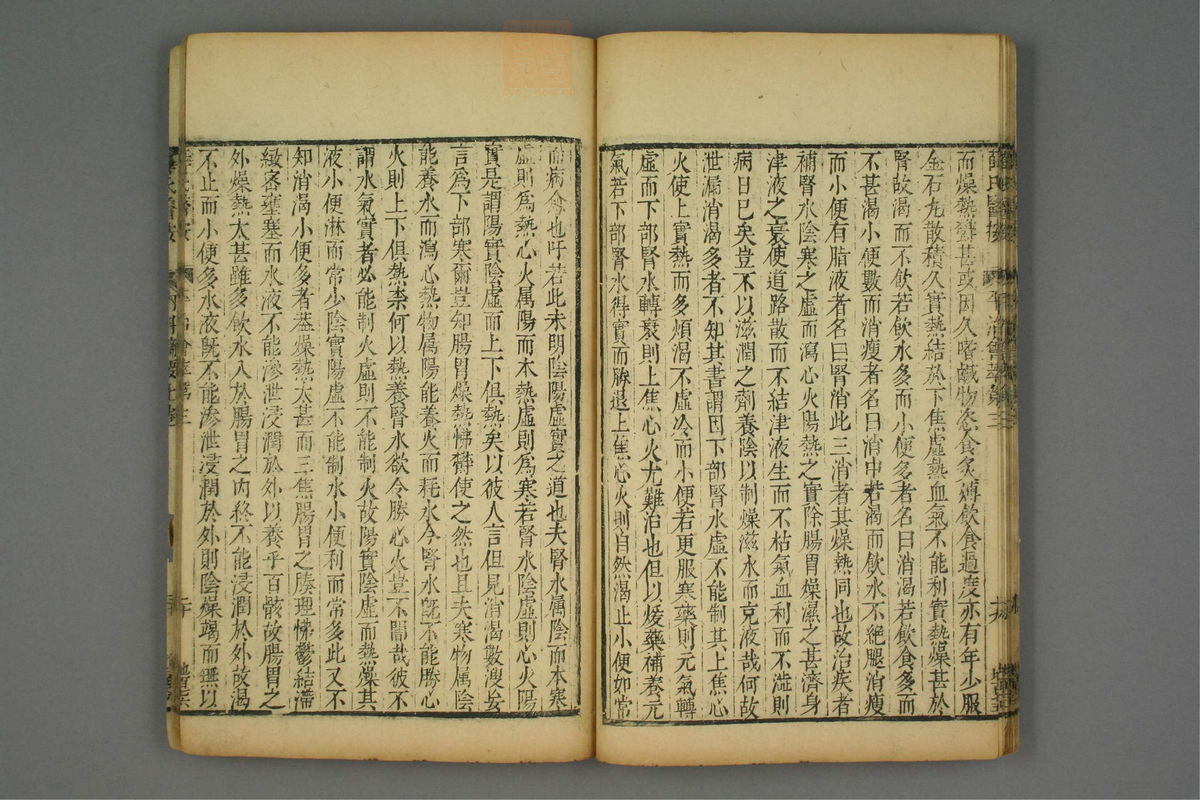 薛氏醫按
而燥熱鬱甚或因久嗜鹹物恣食炙煿飲食過度亦有年少服
金石丸散積久實熱結於下焦虛熱血氣不能利實熱燥甚於
腎故渴而不飲若飲水多而小便多者名曰消渴若飲食多而
不甚渴小便數而消瘦者名曰消中若渴而飲水不絕腿消瘦
而小便有脂液者名曰腎消此三消者其燥熱同也故治疾者
補腎水陰寒之虛而瀉心火陽熱之實除腸胃燥濕之甚濟身
津液之衰使道路散而不結津液生而不枯氣血利而不澁則
病日已矣豈不以滋潤之劑養陰以制燥滋水而充液哉何故
泄漏消渴多者不知其書謂因下部腎水虛不能制其上焦心
火使上實熱而多煩渴下虛冷而小便若更服寒藥則元氣轉
虛而下部腎水轉衰則上焦心火尤難治也但以煖藥補養元
氣若下部腎水得實而勝退上焦心火則自然渴止小便如常
而病愈也吁若此未明陰陽虛實之道也夫腎水属陰而本寒
虛則爲熱心火属陽而本熱虛則爲寒若腎水陰虛則心火陽
實是謂陽實陰虛而上下俱熱矣以彼人言但見消渴數溲妄
言爲下部寒爾豈知腸胃燥熱怫鬱使之然也且夫寒物属陰
能養水而瀉心熱物属陽能養火而耗水今腎水旣不能勝心
火則上下俱熱柰何以熱養腎水欲令勝心火豈不闇哉彼不
謂水氣實者必能制火虛則不能制火故陽實陰虛而熱燥其
液小便淋而常少陰實陽虛不能制水小便利而常多此又不
知消渴小便多者葢燥熱太甚而三焦腸胃之腠理怫鬱結滯
緻密壅塞而水液不能滲泄浸潤於外以養乎百骸故腸胃之
外燥熱太甚雖多飲水入於腸胃之内終不能浸潤於外故渴
不止而小便多水液旣不能滲泄浸潤於外則陰燥竭而無以